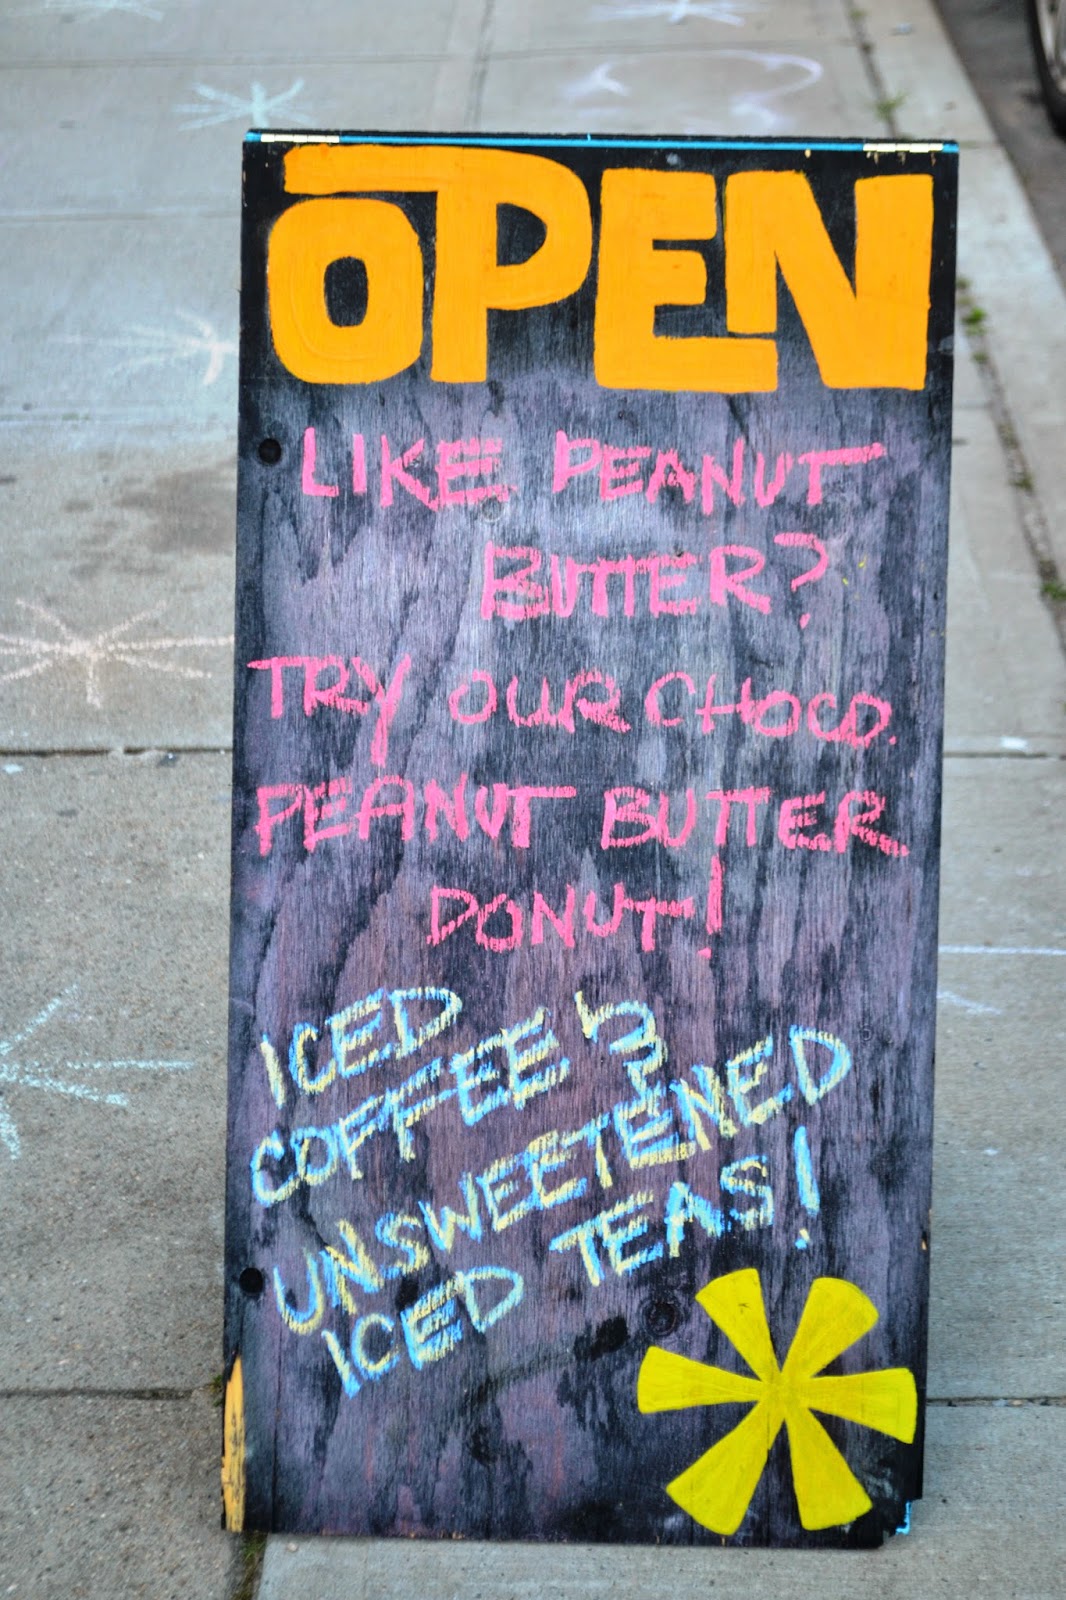 OPEN
LIKE PEANUT
BUTTER?
TRY OUR CHOCO.
PEANUT BUTTER
DONUT!
ICED
COFFEE &
UNSWEETENED
ICED TEAS!